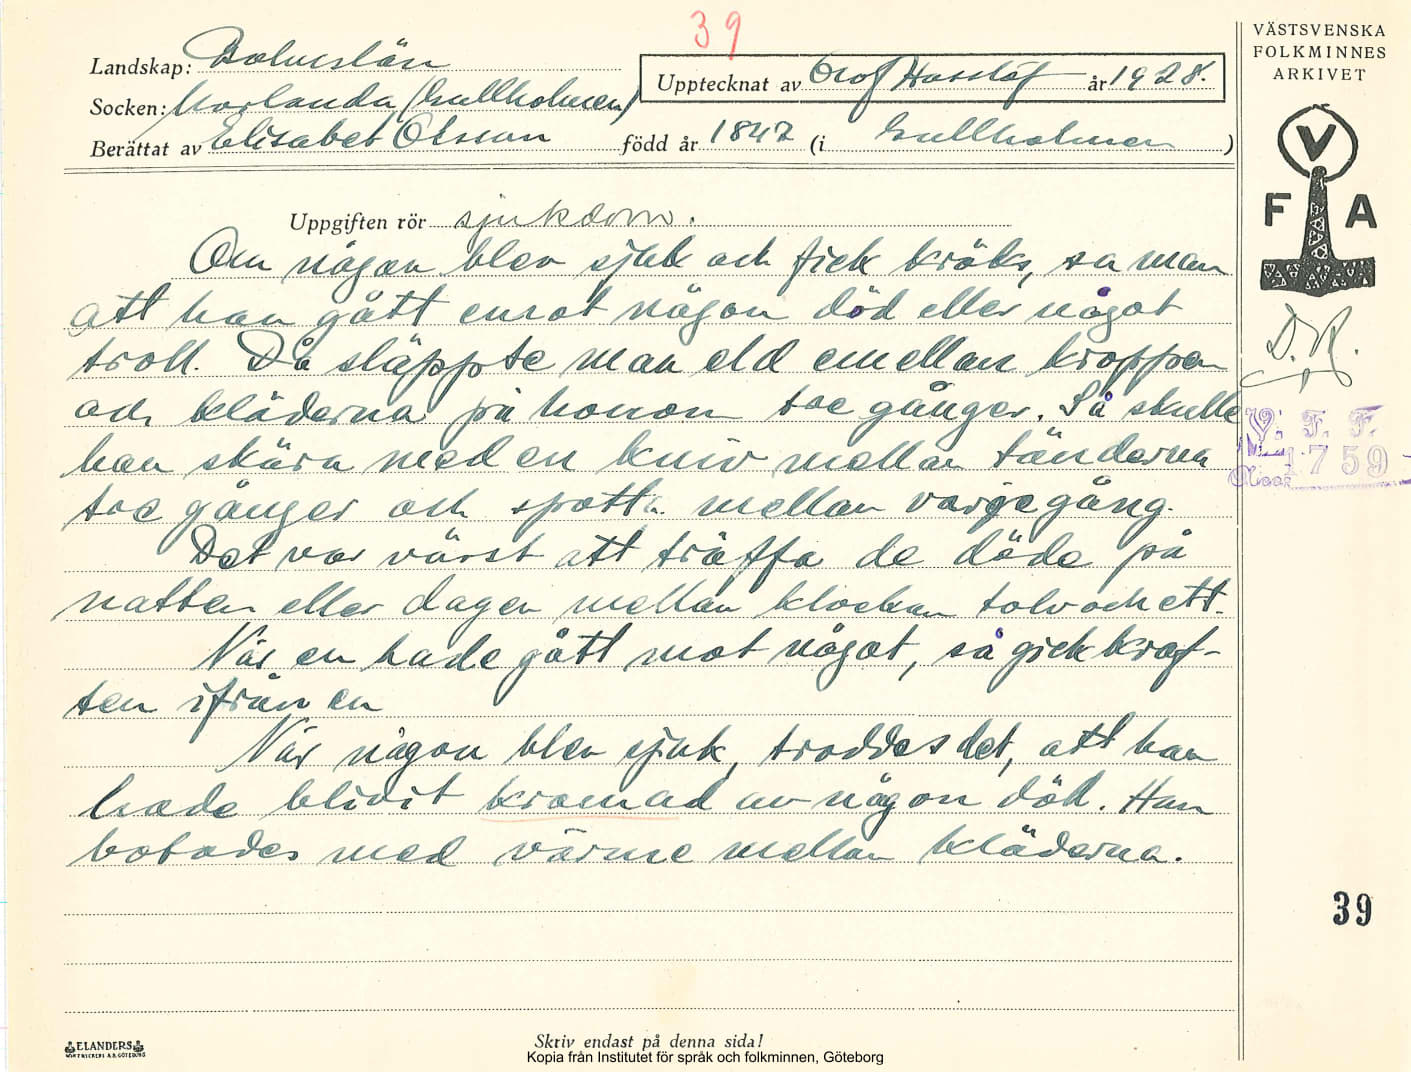 39
Landskap: Bohuslän
Upptecknat av Olof Hasslöf år 1928.
Socken: Morlanda (Gullholmen)
Berättat av Elisabet Olsson född år 1847 (i Gullholmen )
VÄSTSVENSKA
FOLKMINNES
ARKIVET
V
F A
Uppgiften rör sjukdom.
Om någon blev sjuk och fick kräks, sa man
att han gått emot någon död eller något
troll. Då släppte man eld emellan kroppen
och kläderna på honom tre gånger. Så skulle
han skära med en kniv mellan tänderna
tre gånger och spotta mellan varje gång.
Det var värst att träffa de döde på
natten eller dagen mellan klockan tolv och ett.
När en hade gått mot något, så gick kraf-
ten ifrån en
När någon blev sjuk, troddes det, att han
hade blivit kramad av någon död. Han
botades med värme mellan kläderna.
D.R.
V. F. F.
1759
39
ELANDERS
Skriv endast på denna sida!
Kopia från Institutet för språk och folkminnen, Göteborg